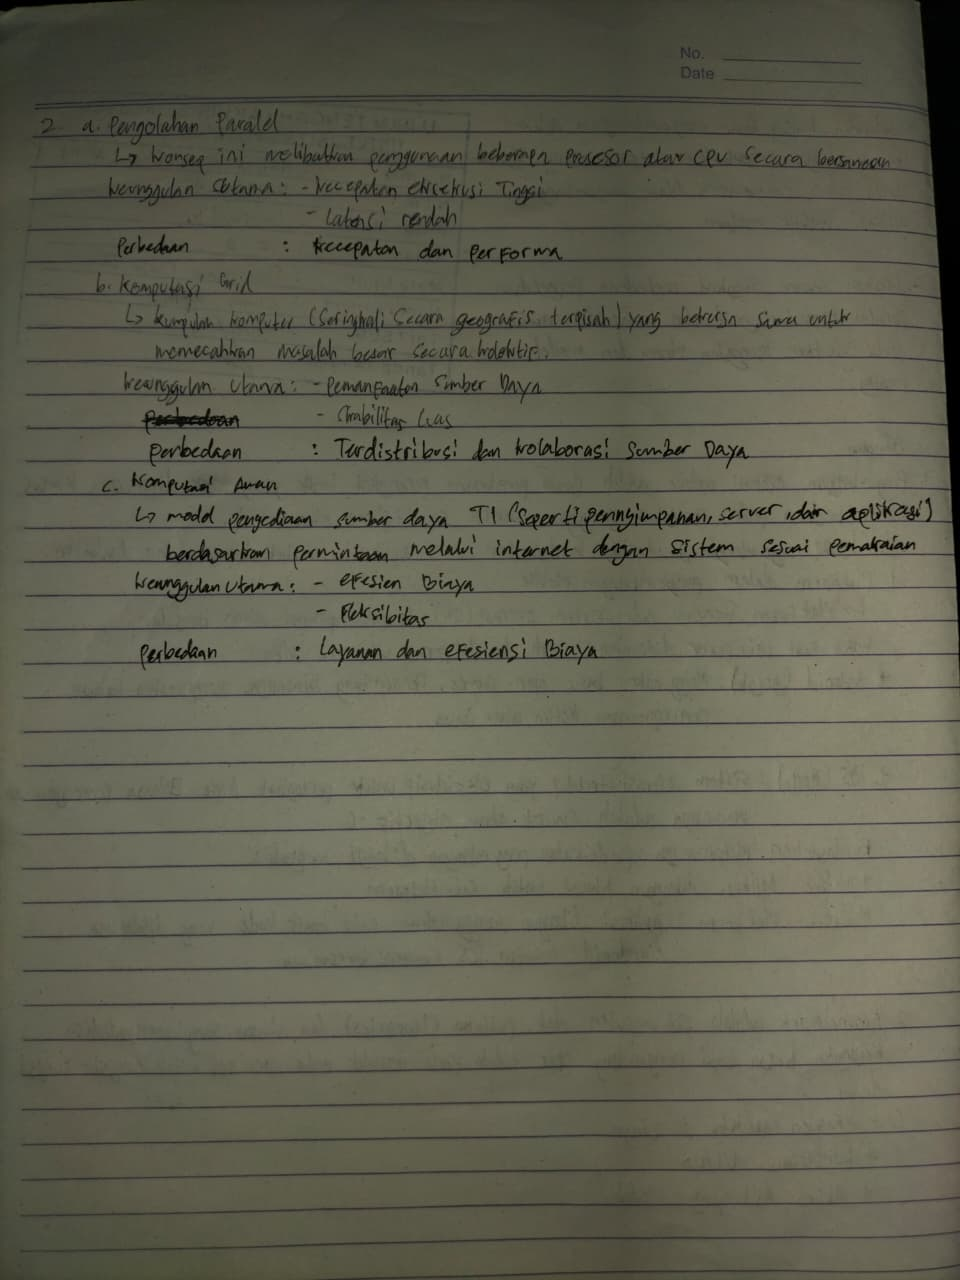 No.
Date
2. a. Pengolahan Paralel
↳ Konsep ini melibatkan penggunaan beberapa prosesor atau CPU secara bersamaan
Keunggulan Utama : - Kecepatan eksekusi Tinggi
- Latensi rendah
Perbedaan : Kecepatan dan Performa
b. Komputasi Grid
↳ Kumpulan komputer (Seringkali Secara geografis terpisah) yang bekerja sama untuk
memecahkan masalah besar secara kolektif.
Keunggulan Utama : - Pemanfaatan Sumber Daya
- Skabilitas Luas
Perbedaan : Terdistribusi dan kolaborasi Sumber Daya
c. Komputasi Awan
↳ model pengediaan sumber daya TI (Seperti penyimpanan, server, dan aplikasi)
berdasarkan permintaan melalui internet dengan sistem sesuai pemakaian
Keunggulan Utama : - efesien Biaya
- Fleksibitas
Perbedaan : Layanan dan efesiensi Biaya